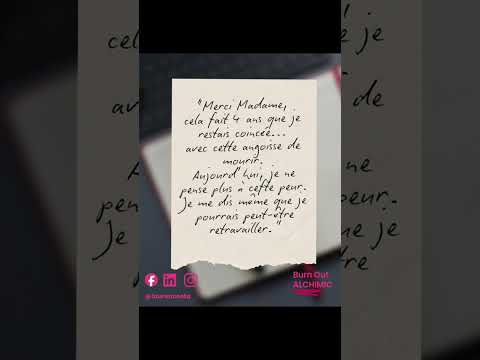 "Merci Madame,
cela fait 4 ans que je
restais coincée...
avec cette angoisse de
mourir.
Aujourd'hui, je ne
pense plus à cette peur.
Je me dis même que je
pourrais peut-être
retravailler."
Burn Out
ALCHIMIC